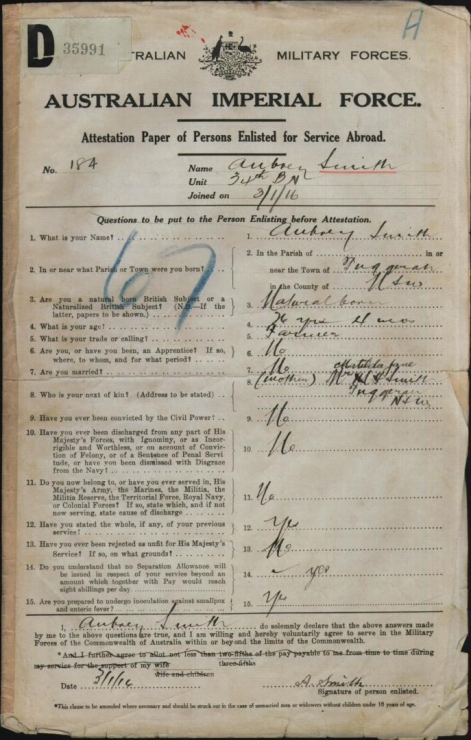 D 35991
H
AUSTRALIAN MILITARY FORCES.
AUSTRALIAN IMPERIAL FORCE.
Attestation Paper of Persons Enlisted for Service Abroad.
No. 184 Name Aubrey Smith
Unit 34th BN
Joined on 3/1/16
Questions to be put to the Person Enlisting before Attestation.
67
1. What is your Name? 1. Aubrey Smith
2. In or near what Parish or Town were you born? 2. In the Parish of in or
near the Town of Tuggerah
in the County of NSW
3. Are you a natural born British Subject or a
Naturalized British Subject? (N.B.—If the
latter, papers to be shown.) 3. Natural born
4. What is your age? 4. yrs mos
5. What is your trade or calling? 5. Farmer
6. Are you, or have you been, an Apprentice? If so,
where, to whom, and for what period? 6. No
7. Are you married? 7. No
8. Who is your next of kin? (Address to be stated) 8. (mother) Matilda Jane Smith
Tuggerah
NSW
9. Have you ever been convicted by the Civil Power? 9. No
10. Have you ever been discharged from any part of His
Majesty's Forces, with Ignominy, or as Incor-
rigible and Worthless, or on account of Convic-
tion of Felony, or of a Sentence of Penal Servi-
tude, or have you been dismissed with Disgrace
from the Navy? 10. No
11. Do you now belong to, or have you ever served in, His
Majesty's Army, the Marines, the Militia, the
Militia Reserve, the Territorial Force, Royal Navy,
or Colonial Forces? If so, state which, and if not
now serving, state cause of discharge 11. No
12. Have you stated the whole, if any, of your previous
service? 12. yes
13. Have you ever been rejected as unfit for His Majesty's
Service? If so, on what grounds? 13. No
14. Do you understand that no Separation Allowance will
be issued in respect of your service beyond an
amount which together with Pay would reach
eight shillings per day 14. yes
15. Are you prepared to undergo inoculation against smallpox
and enteric fever? 15. yes
I, Aubrey Smith do solemnly declare that the above answers made
by me to the above questions are true, and I am willing and hereby voluntarily agree to serve in the Military
Forces of the Commonwealth of Australia within or beyond the limits of the Commonwealth.
*And I further agree to allot not less than two-fifths of the pay payable to me from time to time during
my service for the support of my wife three-fifths
wife and children
Date 3/1/16 A. Smith
Signature of person enlisted.
*This clause to be amended where necessary and should be struck out in the case of unmarried men or widowers without children under 18 years of age.